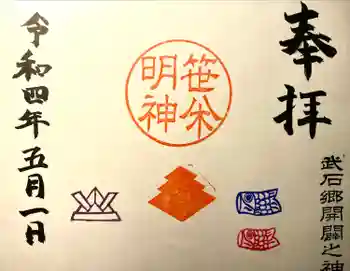 奉拝
武石郷開闢之神
笹
明神
令和四年五月一日